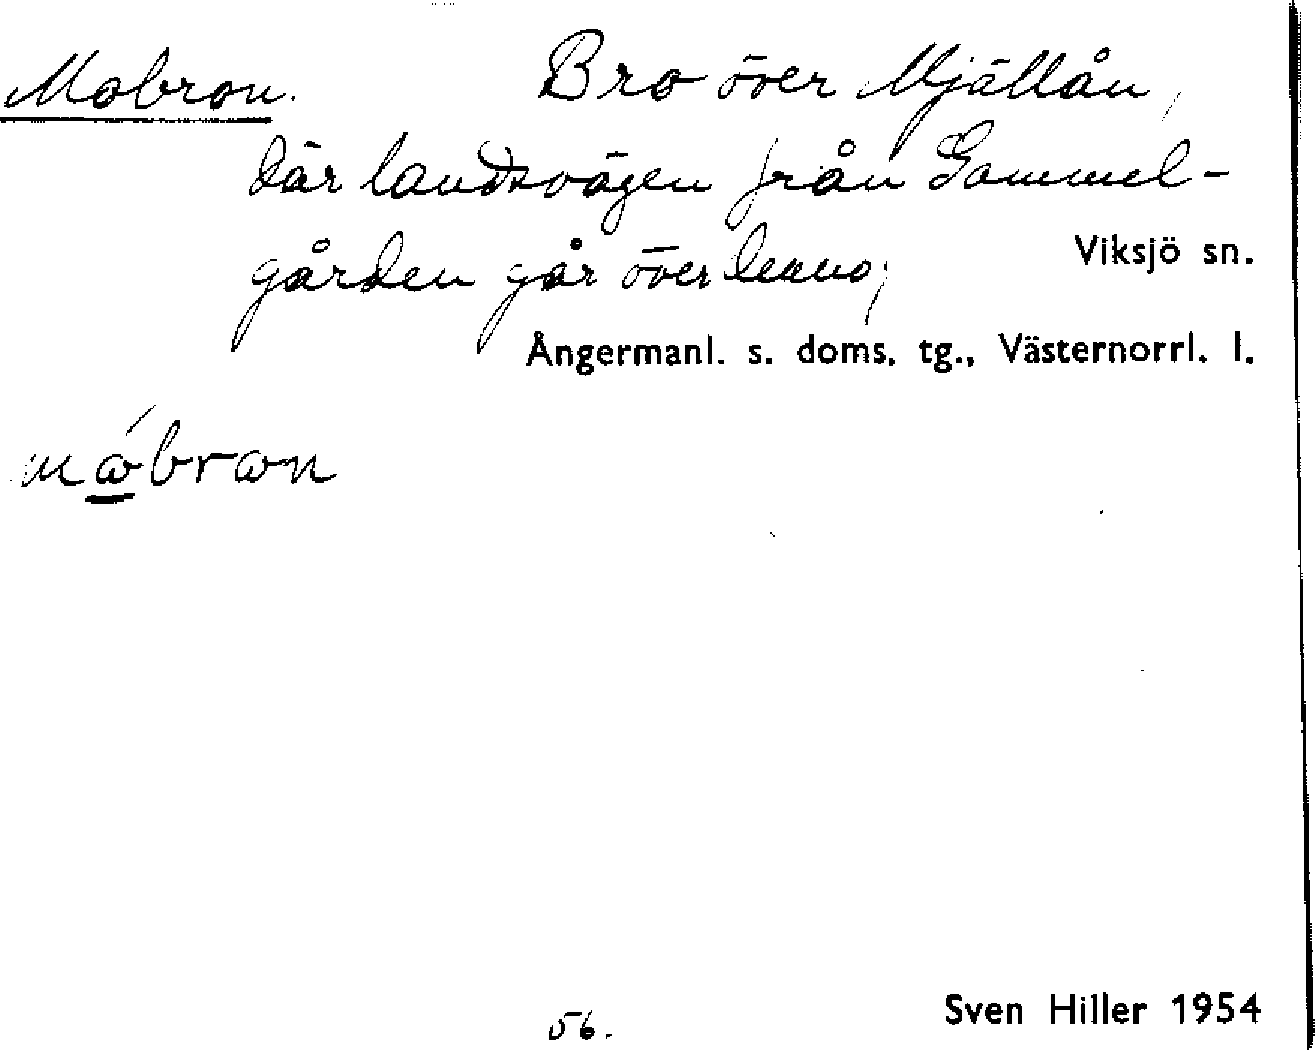 Mobron. Bro över Mjällån,
där landsvägen från Gammel-
gården går över denna;
Viksjö sn.
Ångermanl. s. doms. tg., Västernorrl. l.
56.
Sven Hiller 1954